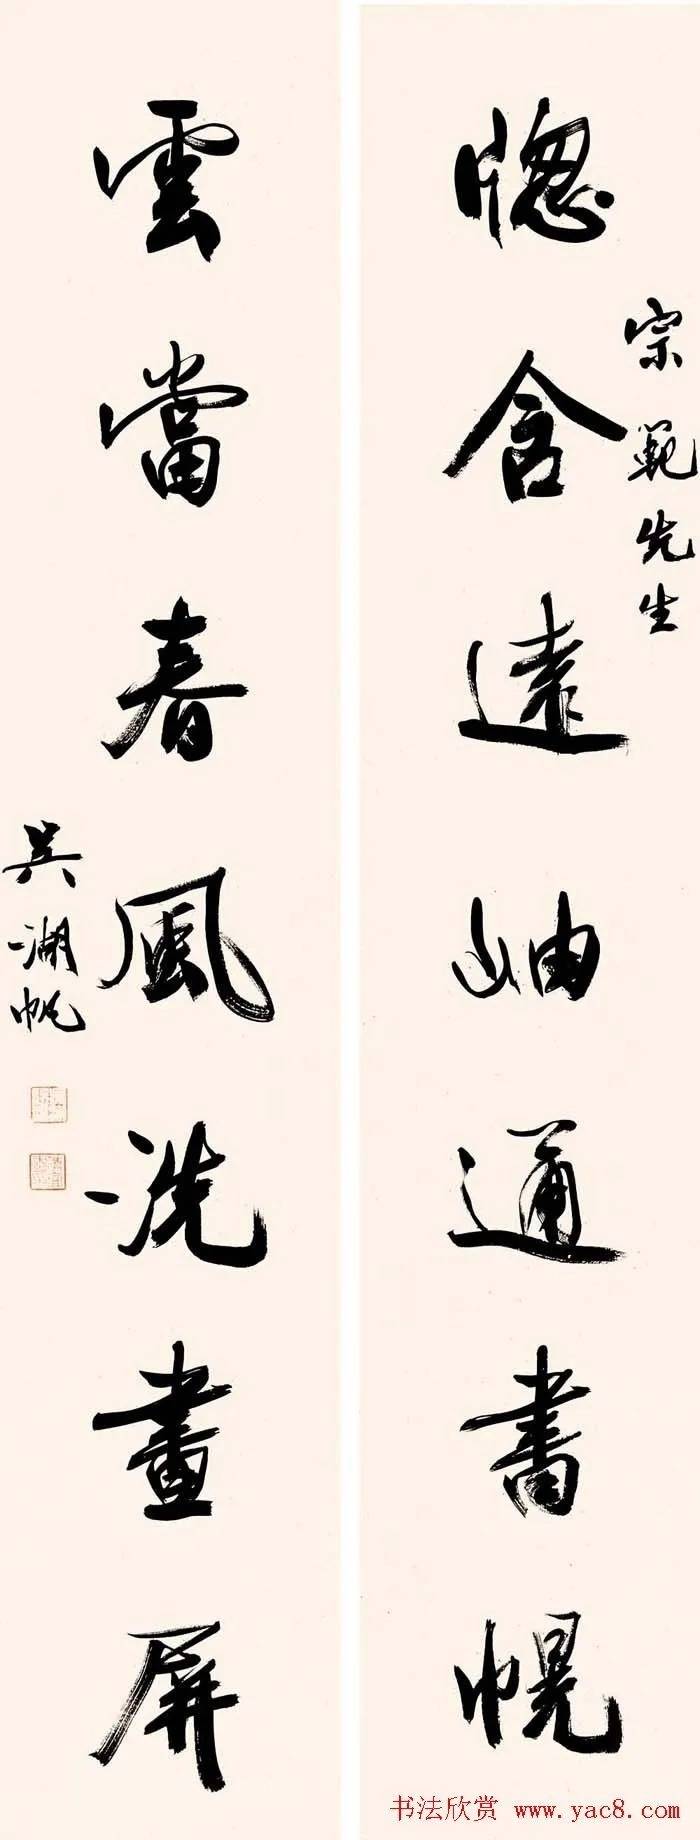 宗範先生
牕含遠岫通書幌
雲當春風洗畫屏
吳湖帆
书法欣赏 www.yac8.com